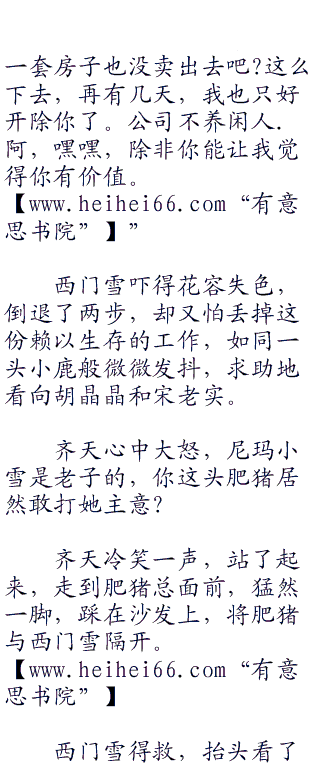 一套房子也没卖出去吧?这么
下去，再有几天，我也只好
开除你了。公司不养闲人.
阿，嘿嘿，除非你能让我觉
得你有价值。
【www.heihei66.com“有意
思书院”】”
西门雪吓得花容失色，
倒退了两步，却又怕丢掉这
份赖以生存的工作，如同一
头小鹿般微微发抖，求助地
看向胡晶晶和宋老实。
齐天心中大怒，尼玛小
雪是老子的，你这头肥猪居
然敢打她主意?
齐天冷笑一声，站了起
来，走到肥猪总面前，猛然
一脚，踩在沙发上，将肥猪
与西门雪隔开。
【www.heihei66.com“有意
思书院”】
西门雪得救，抬头看了